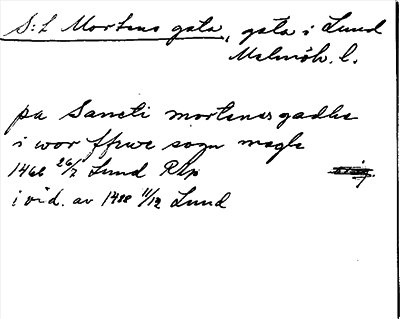 S:t Mortens gata, gata i Lund
Malmöh. l.
pa Sancti mortensgadhe
i wor ffrwe sogn
1462 26/7 Lund Rep
i vid. av 1488 11/12 Lund